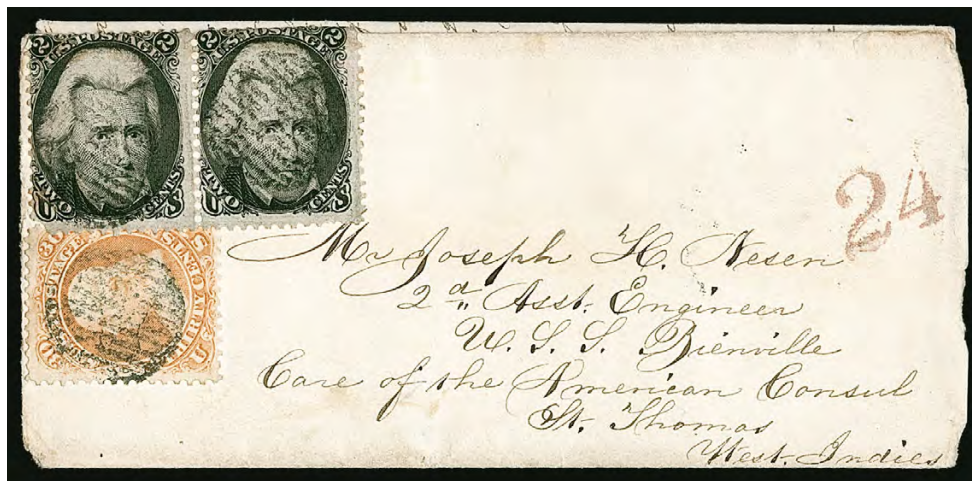 2 U.S. POSTAGE 2
2 U.S. POSTAGE 2
U TWO CENTS S
U TWO CENTS S
30 POSTAGE
THIRTY CENTS
30
U S
24
Mr Joseph H. Nesen
2d Asst. Engineer
U. S. S. Bienville
Care of the American Consul
St. Thomas
West Indies